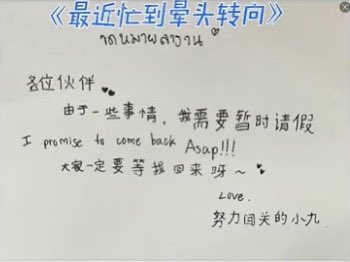 《最近忙到晕头转向》
จดหมายลางาน
各位伙伴
由于一些事情，我需要暂时请假
I promise to come back Asap!!!
大家一定要等我回来呀～
Love.
努力闯关的小九